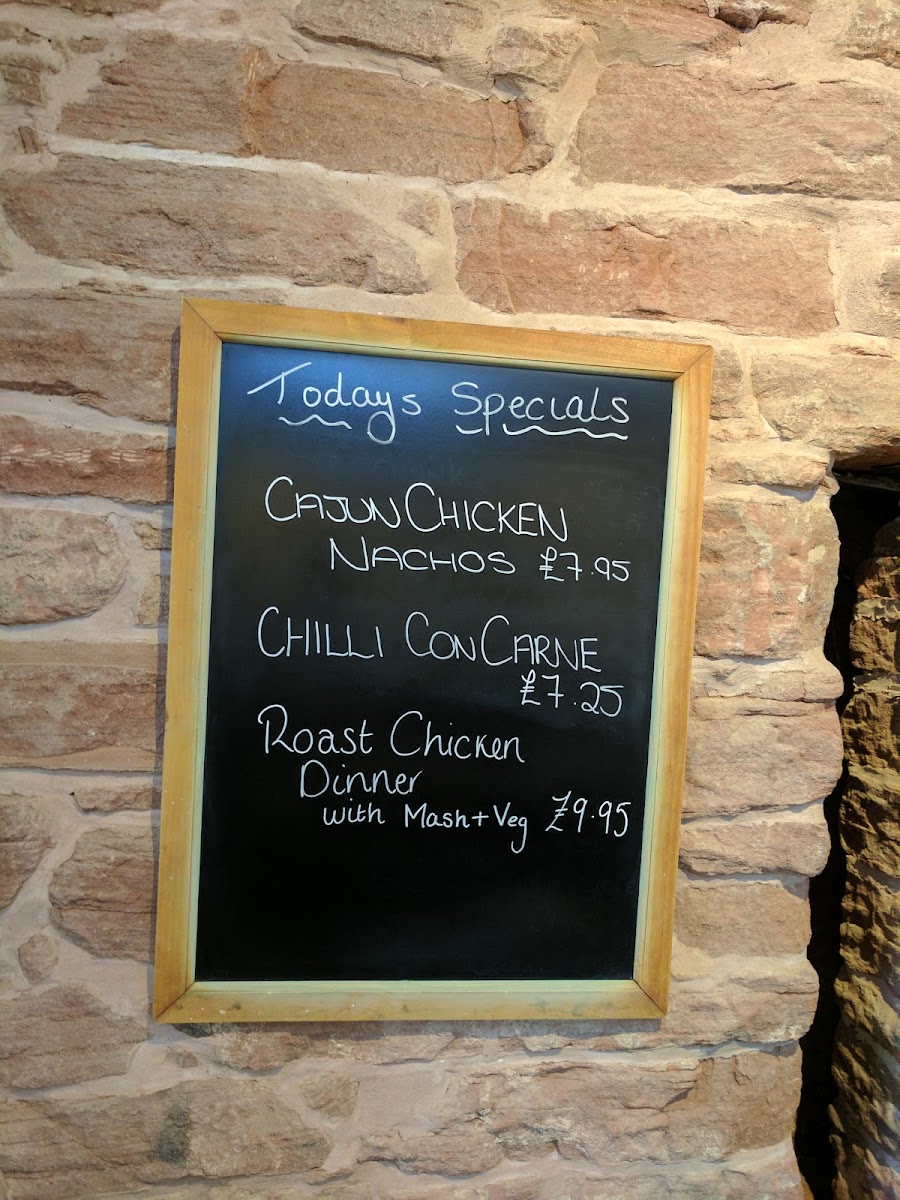 Todays Specials
CAJUN CHICKEN
NACHOS £7.95
CHILLI CON CARNE
£7.25
Roast Chicken
Dinner
with Mash+Veg £9.95